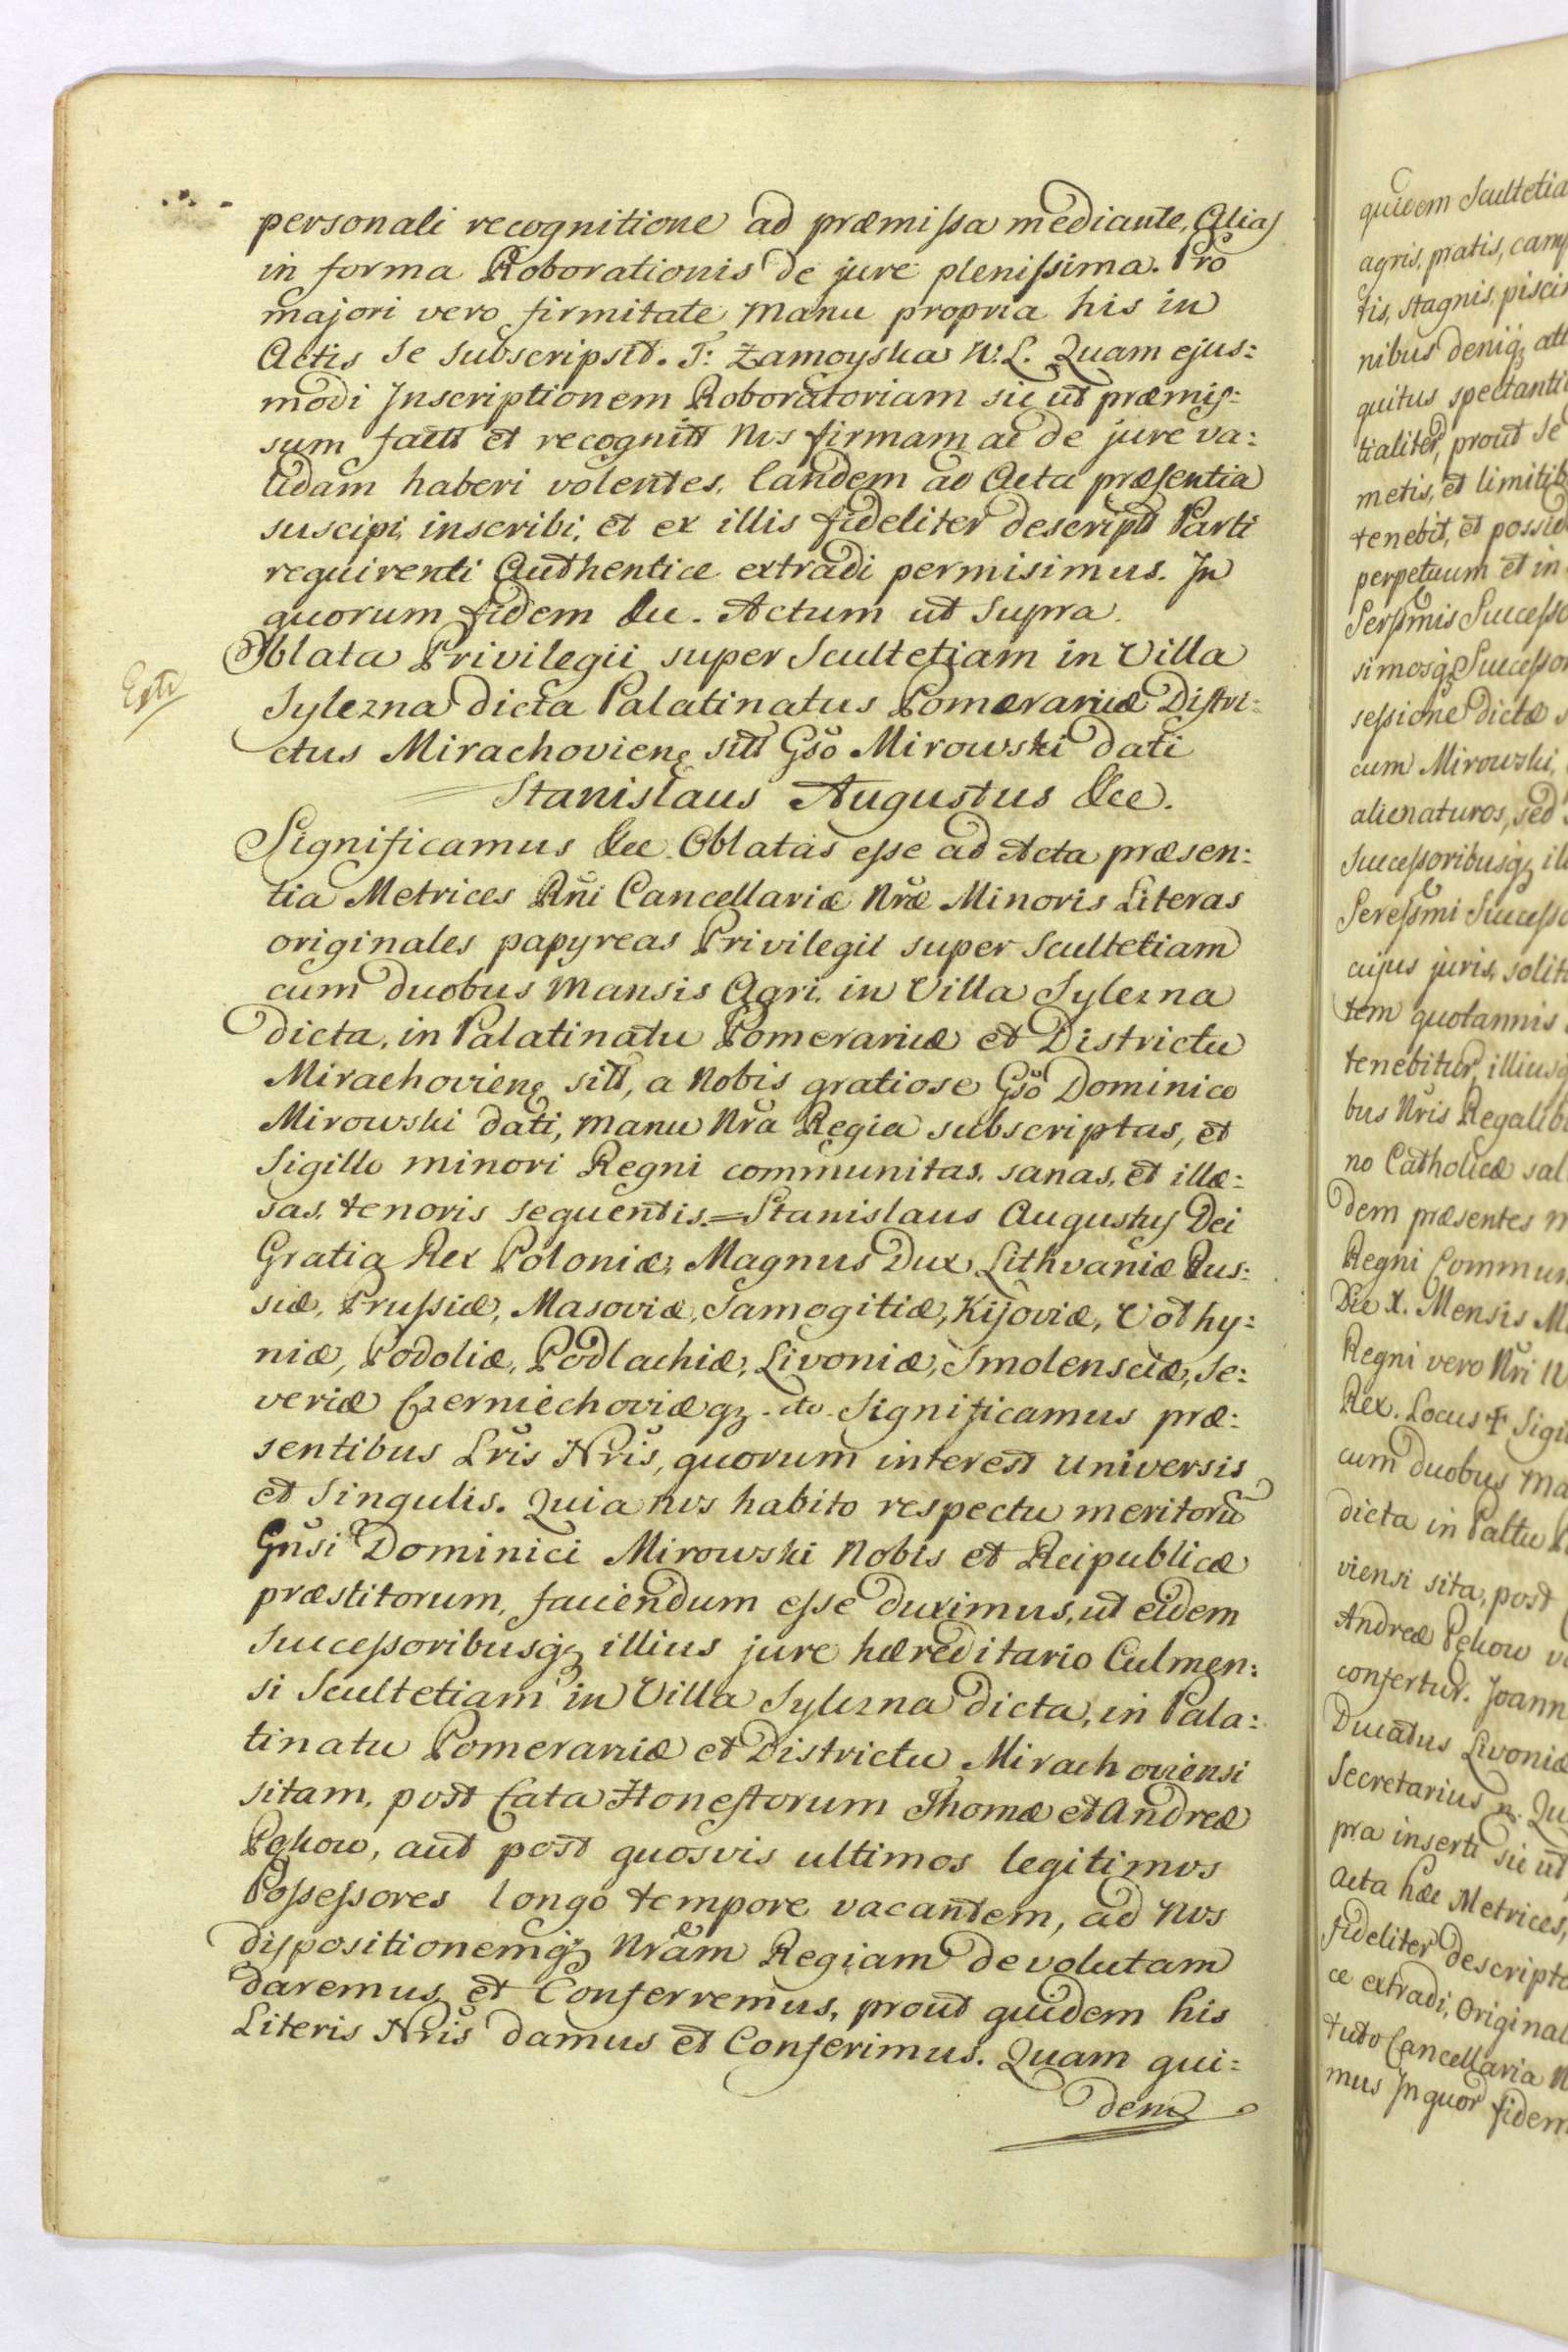 personali recognitione ad præmissa mediante, Alias
in forma Roborationis de jure plenissima. Pro
majori vero firmitate manu propria his in
Actis se subscripsit. T: Zamoyska W. L. Quam ejus:
modi Inscriptionem Roboratoriam sic ut præmis:
sum factt et recognitt Nos firmam ac de jure va:
lidam haberi volentes. Eandem ad Acta præsentia
suscipi, inscribi, et ex illis fideliter descript Parti
requirenti Authentice extradi permisimus. In
quorum fidem &c. Actum ut supra.
Oblata Privilegii super Scultetiam in Villa
Sylezna dicta Palatinatus Pomeraniæ Distri:
ctus Mirachovien sitt Gso Mirowski dati
Stanislaus Augustus &cc.
Significamus &cc. Oblatas esse ad Acta præsen:
tia Metrices Rni Cancellariæ Nræ Minoris Literas
originales papyreas Privilegii super Scultetiam
cum duobus Mansis Agri, in Villa Sylezna
dicta, in Palatinatu Pomeraniæ et Districtu
Mirachovien sitt, a Nobis gratiose Gso Dominico
Mirowski dati, manu Nra Regia subscriptas, et
Sigillo minori Regni communitas, sanas, et illæ:
sas, tenoris sequentis.=Stanislaus Augustus Dei
Gratia Rex Poloniæ, Magnus Dux Lithvaniæ Rus:
siæ, Prussiæ, Masoviæ, Samogitiæ, Kijoviæ, Volhy:
niæ, Podoliæ, Podlachiæ, Livoniæ, Smolensciæ, Se:
veriæ Czerniechoviæqz. etc. Significamus præ:
sentibus Lris Nris, quorum interest universis
et singulis. Quia nos habito respectu meritorū
Gnsi Dominici Mirowski Nobis et Reipublicæ
præstitorum, faciendum esse duximus, ut eidem
successoribusqz illius jure hæreditario Culmen:
si Scultetiam in Villa Sylezna dicta, in Pala:
tinatu Pomeraniæ et Districtu Mirachoviensi
sitam, post fata Honestorum Thomæ et Andreæ
Pękow, aut post quosvis ultimos legitimos
Possessores longo tempore vacantem, ad Nos
dispositionemqz Nram Regiam devolutam
daremus et Conferremus, prout quidem his
Literis Nris damus et Conferimus. Quam qui:
dem
quidem Scultetia
agris, pratis, camp
tis, stagnis, piscin
nibus deniqz
quitus spectanti
tialiter, prout se
metis, et limitib
tenebit, et possid
perpetuum et in
Serssmis Successo
simosqz Successor
sessione dictæ s
cum Mirowski,
alienaturos, sed
successoribusqz ill
Seressmi Successo
cujus juris, solit
tem quotannis
tenebitur, illiusq
bus Nris Regalib
no Catholicæ sal
dem præsentes m
Regni Commun
Die X. Mensis M
Regni vero Nri
Rex. Locus Sigi
cum duobus Ma
dicta in Paltu P
viensi sita, post
Andreæ Pękow
confertur. Joann
Ducatus Livoniæ
Secretarius
pra inserti sic ut
Acta hæc Metrices,
fideliter descript
ce extradi, Original
tuto Cancellaria N
mus In quor fidem